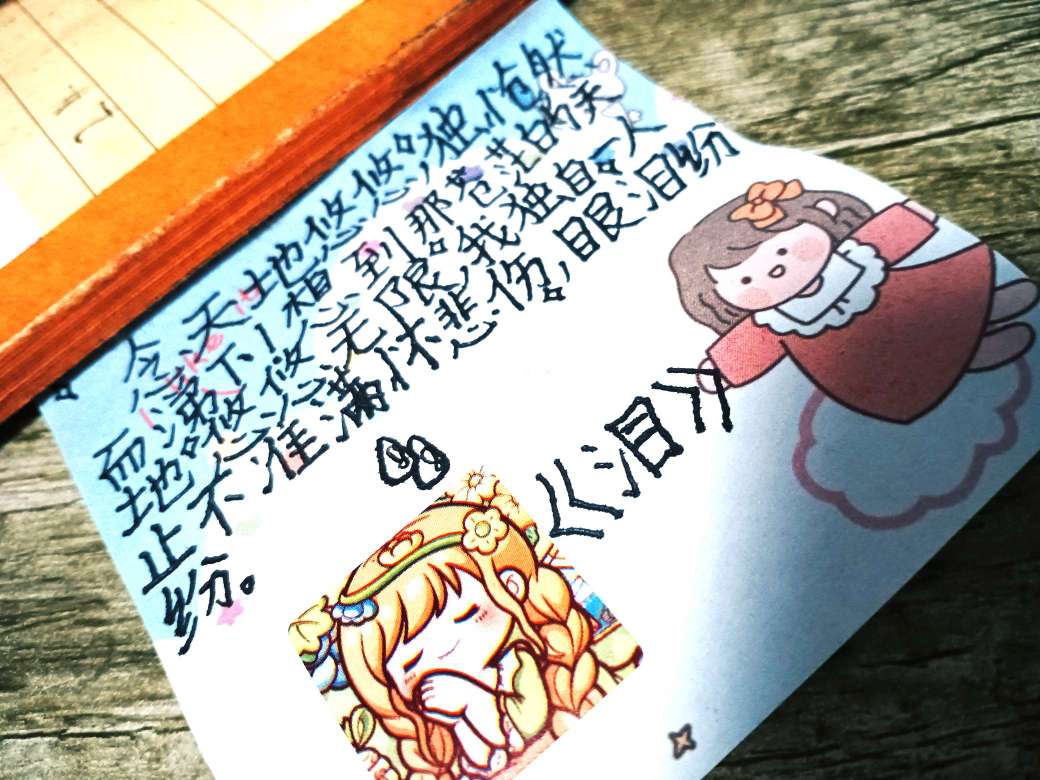 念天地悠悠,独怆然
而涕下!想到那苍茫的天
地。悠悠无限,我独自一人
止不住满怀悲伤,眼泪纷
纷。
《泪》